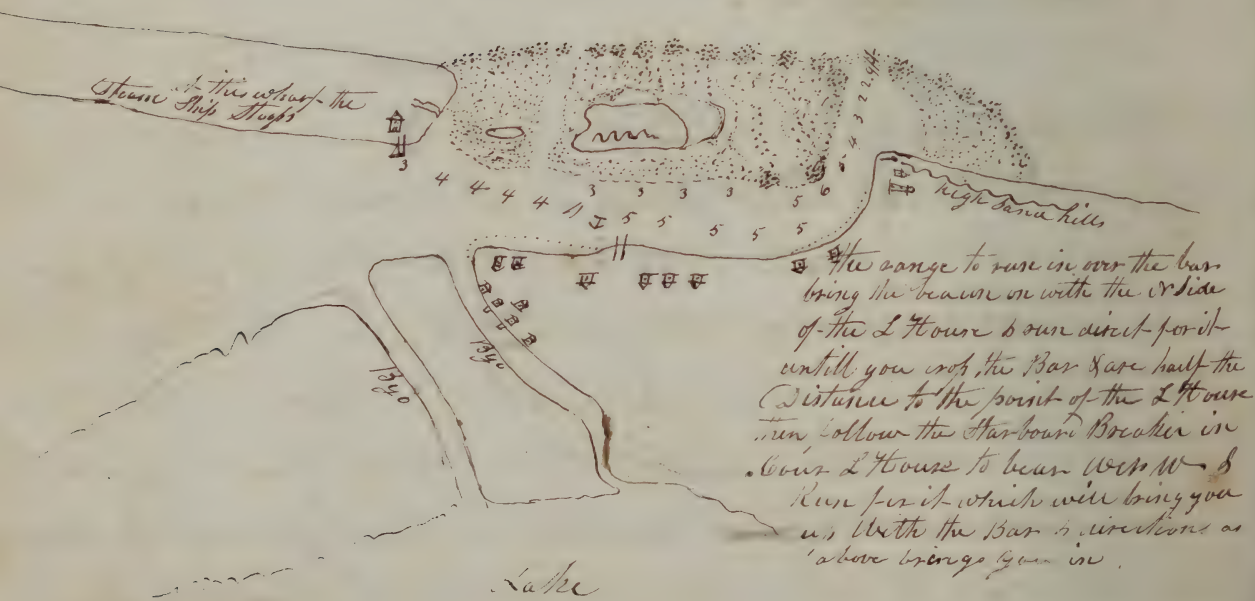 At this wharf the
Steam Ship Stops
3
4 4 4 4 4
3 3 3 3
5 5 5 5 5 5
6
6 4 3 2 2 9/4
high sand hills
Byo
Byo
the range to run in over the bar
bring the beacon on with the N Side
of the L House & run direct for it
untill you crofs the Bar & are half the
Distance to the point of the L House
then follow the Starboard Breaker in
L House to bear West W &
Run for it which will bring you
up With the Bar & directions as
above brings you in.
Lake